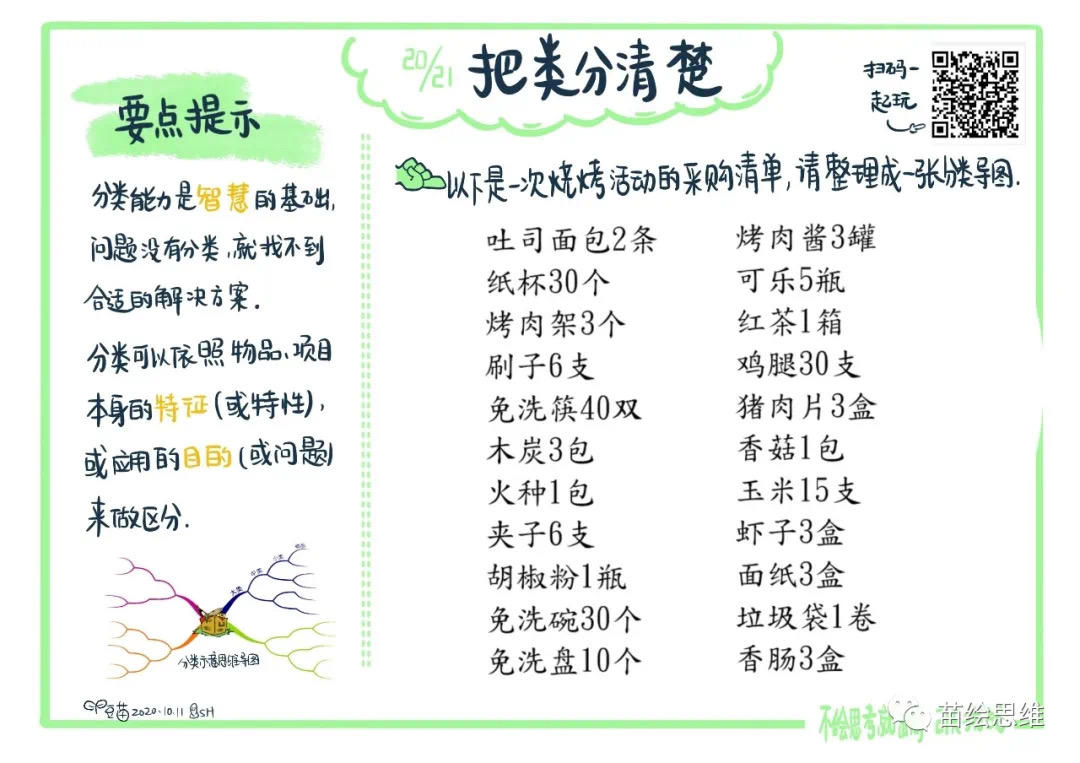 20/21
把类分清楚
扫码一
起玩
要点提示
分类能力是智慧的基础,
问题没有分类,就找不到
合适的解决方案.
分类可以依照物品、项目
本身的特征(或特性),
或应用的目的(或问题)
来做区分.
大类
中类
小类
分类示意思维导图
以下是一次烧烤活动的采购清单,请整理成一张分类导图.
吐司面包2条
纸杯30个
烤肉架3个
刷子6支
免洗筷40双
木炭3包
火种1包
夹子6支
胡椒粉1瓶
免洗碗30个
免洗盘10个
烤肉酱3罐
可乐5瓶
红茶1箱
鸡腿30支
猪肉片3盒
香菇1包
玉米15支
虾子3盒
面纸3盒
垃圾袋1卷
香肠3盒
豆苗2020.10.11
不绘思考就
苗绘思维